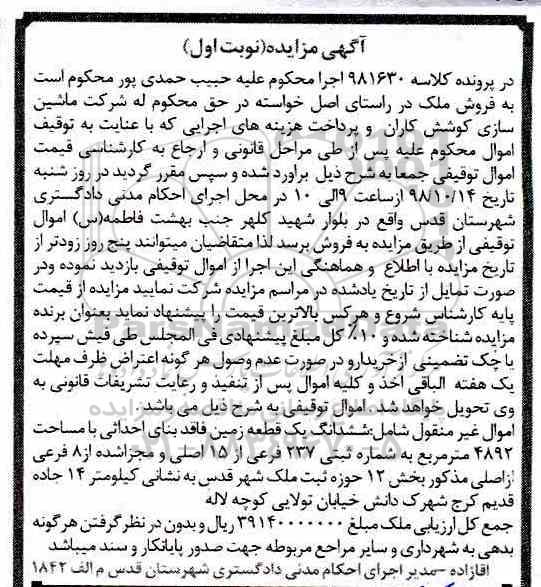 آگهی مزایده(نوبت اول)
در پرونده کلاسه ۹۸۱۶۳۰ اجرا محکوم علیه حبیب حمدی پور محکوم است
به فروش ملک در راستای اصل خواسته در حق محکوم له شرکت ماشین
سازی کوشش کاران و پرداخت هزینه های اجرایی که با عنایت به توقیف
اموال محکوم علیه پس از طی مراحل قانونی و ارجاع به کارشناسی قیمت
اموال توقیفی جمعا به شرح ذیل براورد شده و سپس مقرر گردید در روز شنبه
تاریخ ۹۸/۱۰/۱۴ ازساعت ۹الی ۱۰ در محل اجرای احکام مدنی دادگستری
شهرستان قدس واقع در بلوار شهید کلهر جنب بهشت فاطمه(س) اموال
توقیفی از طریق مزایده به فروش برسد لذا متقاضیان میتوانند پنج روز زودتر از
تاریخ مزایده با اطلاع و هماهنگی این اجرا از اموال توقیفی بازدید نموده ودر
صورت تمایل از تاریخ یادشده در مراسم مزایده شرکت نمایید مزایده از قیمت
پایه کارشناس شروع و هرکس بالاترین قیمت را پیشنهاد نماید بعنوان برنده
مزایده شناخته شده و ۱۰٪ کل مبلغ پیشنهادی فی المجلس طی فیش سپرده
یا چک تضمینی ازخریدارو در صورت عدم وصول هر گونه اعتراض ظرف مهلت
یک هفته الباقی اخذ و کلیه اموال پس از تنفیذ و رعایت تشریفات قانونی به
وی تحویل خواهد شد. اموال توقیفی به شرح ذیل می باشد.
اموال غیر منقول شامل:ششدانگ یک قطعه زمین فاقد بنای احداثی با مساحت
۴۸۹۲ مترمربع به شماره ثبتی ۲۳۷ فرعی از ۱۵ اصلی و مجزاشده از۸ فرعی
ازاصلی مذکور بخش ۱۲ حوزه ثبت ملک شهر قدس به نشانی کیلومتر ۱۴ جاده
قدیم کرج شهرک دانش خیابان تولایی کوچه لاله
جمع کل ارزیابی ملک مبلغ ۳۹۱۴۰۰۰۰۰۰۰ ریال و بدون در نظر گرفتن هرگونه
بدهی به شهرداری و سایر مراجع مربوطه جهت صدور پایانکار و سند میباشد
اقازاده -مدیر اجرای احکام مدنی دادگستری شهرستان قدس م الف ۱۸۴۲